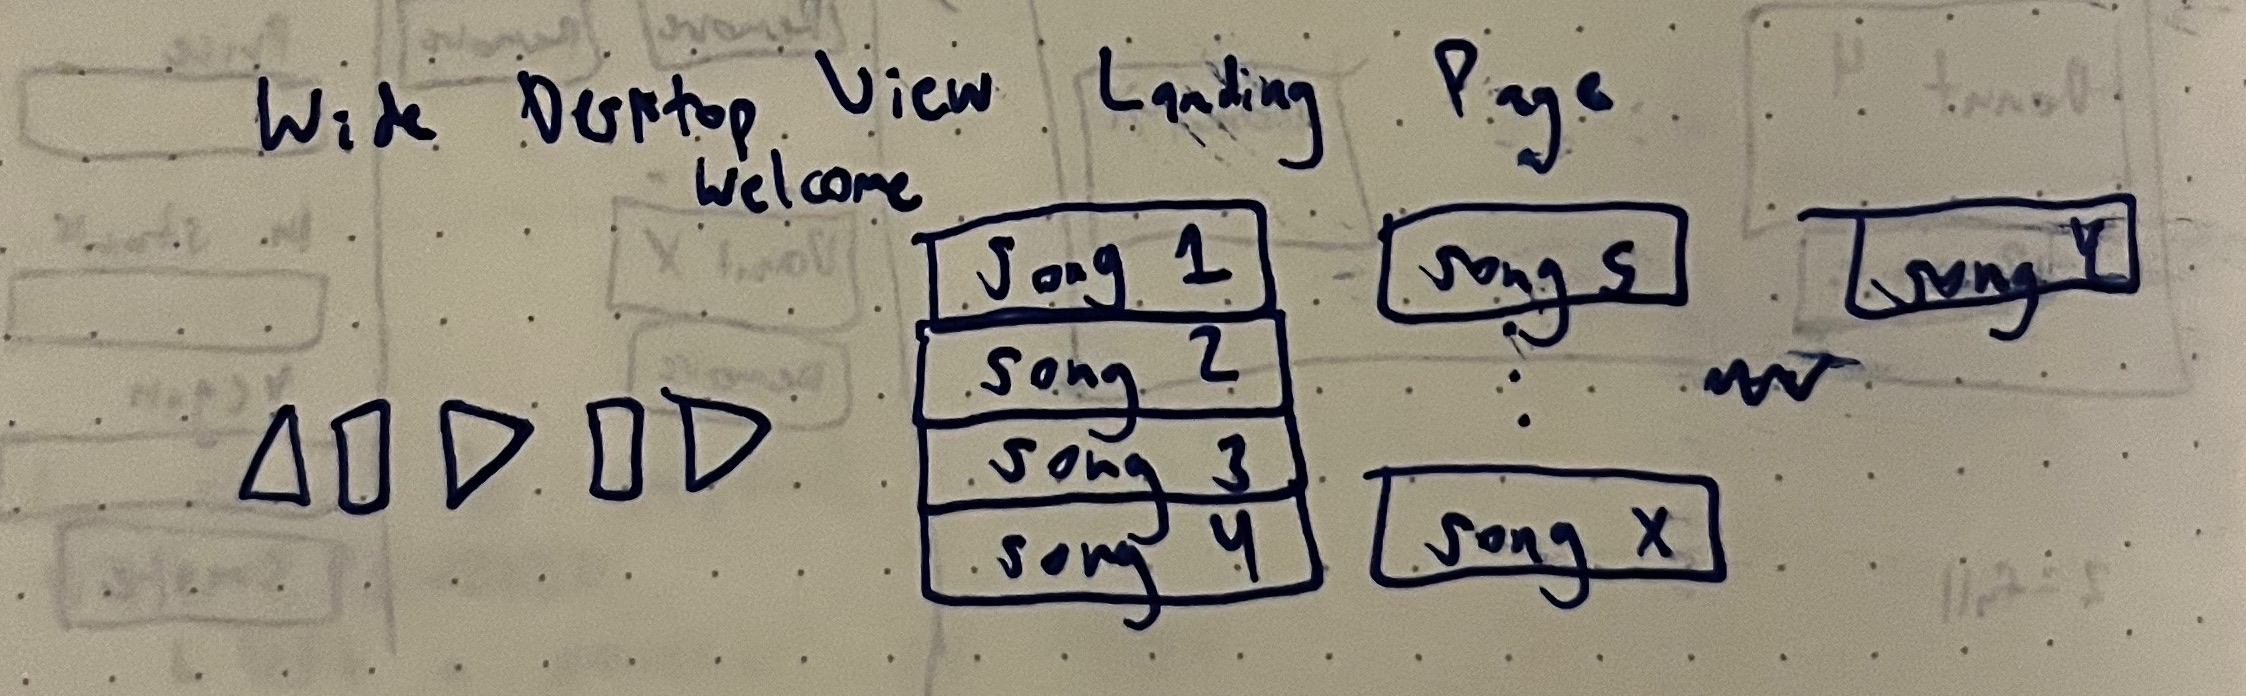 Wide Desktop View Landing Page
Welcome
Song 1
song 5
song Y
song 2
song 3
song 4
song X